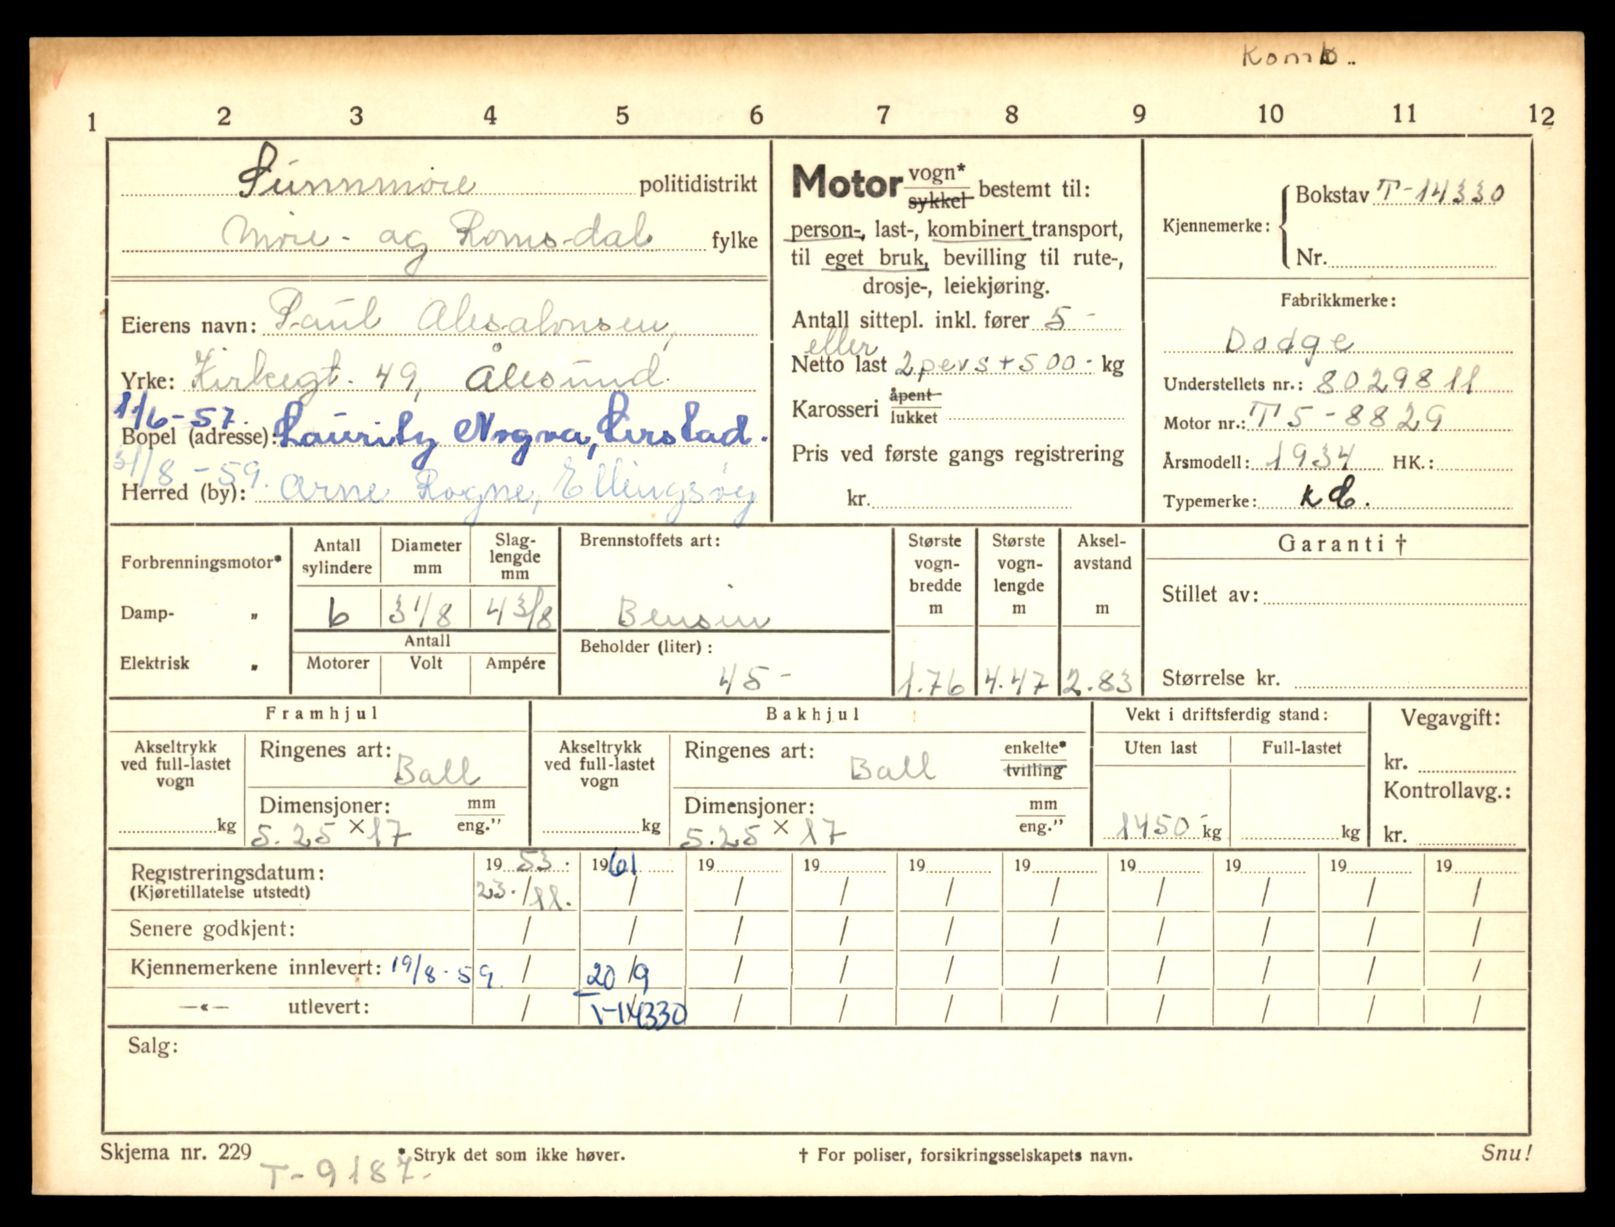 Komb.
1 2 3 4 5 6 7 8 9 10 11 12
Sunnmøre politidistrikt
Møre- og Romsdal fylke
Eierens navn: Paul Absalonsen,
Yrke: Kirkegt. 49, Ålesund.
11/6-57.
Bopel (adresse): Lauritz Nogva, Sirstad.
31/8-59.
Herred (by): Arne Rogne, Ellingsøy
Motor vogn* sykkel bestemt til:
person-, last-, kombinert transport,
til eget bruk, bevilling til rute-,
drosje-, leiekjøring.
Antall sittepl. inkl. fører 5-
eller
Netto last 2 pers + 500- kg
Karosseri åpent lukket
Pris ved første gangs registrering
kr.
Kjennemerke: Bokstav T-14330
Nr.
Fabrikkmerke:
Dodge
Understellets nr.: 8029811
Motor nr.: T5-8829
Årsmodell: 1934 HK.:
Typemerke:
Forbrenningsmotor*
Damp- „
Elektrisk „
Antall sylindere Diameter mm Slaglengde mm
6 3 1/8 4 3/8
Antall
Motorer Volt Ampére
Brennstoffets art:
Bensin
Beholder (liter):
45-
Største vognbredde m Største vognlengde m Akselavstand m
1.76 4.47 2.83
Garanti †
Stillet av:
Størrelse kr.
Framhjul
Akseltrykk ved full-lastet vogn
kg
Ringenes art: Ball
Dimensjoner: mm eng.”
5.25 × 17
Bakhjul
Akseltrykk ved full-lastet vogn
kg
Ringenes art: Ball enkelte* tvilling
Dimensjoner: mm eng.”
5.25 × 17
Vekt i driftsferdig stand:
Uten last Full-lastet
1450- kg kg
Vegavgift:
kr.
Kontrollavg.:
kr.
Registreringsdatum: 19 53. 19 61 19 19 19 19 19 19 19 19
(Kjøretillatelse utstedt) 23./11. / / / / / / / / /
Senere godkjent: / / / / / / / / / /
Kjennemerkene innlevert: 19/8-59. / 20/9 / / / / / / / /
—«— utlevert: / T-14330 / / / / / / / /
Salg:
Skjema nr. 229 * Stryk det som ikke høver. † For poliser, forsikringsselskapets navn. Snu!
T-9187-